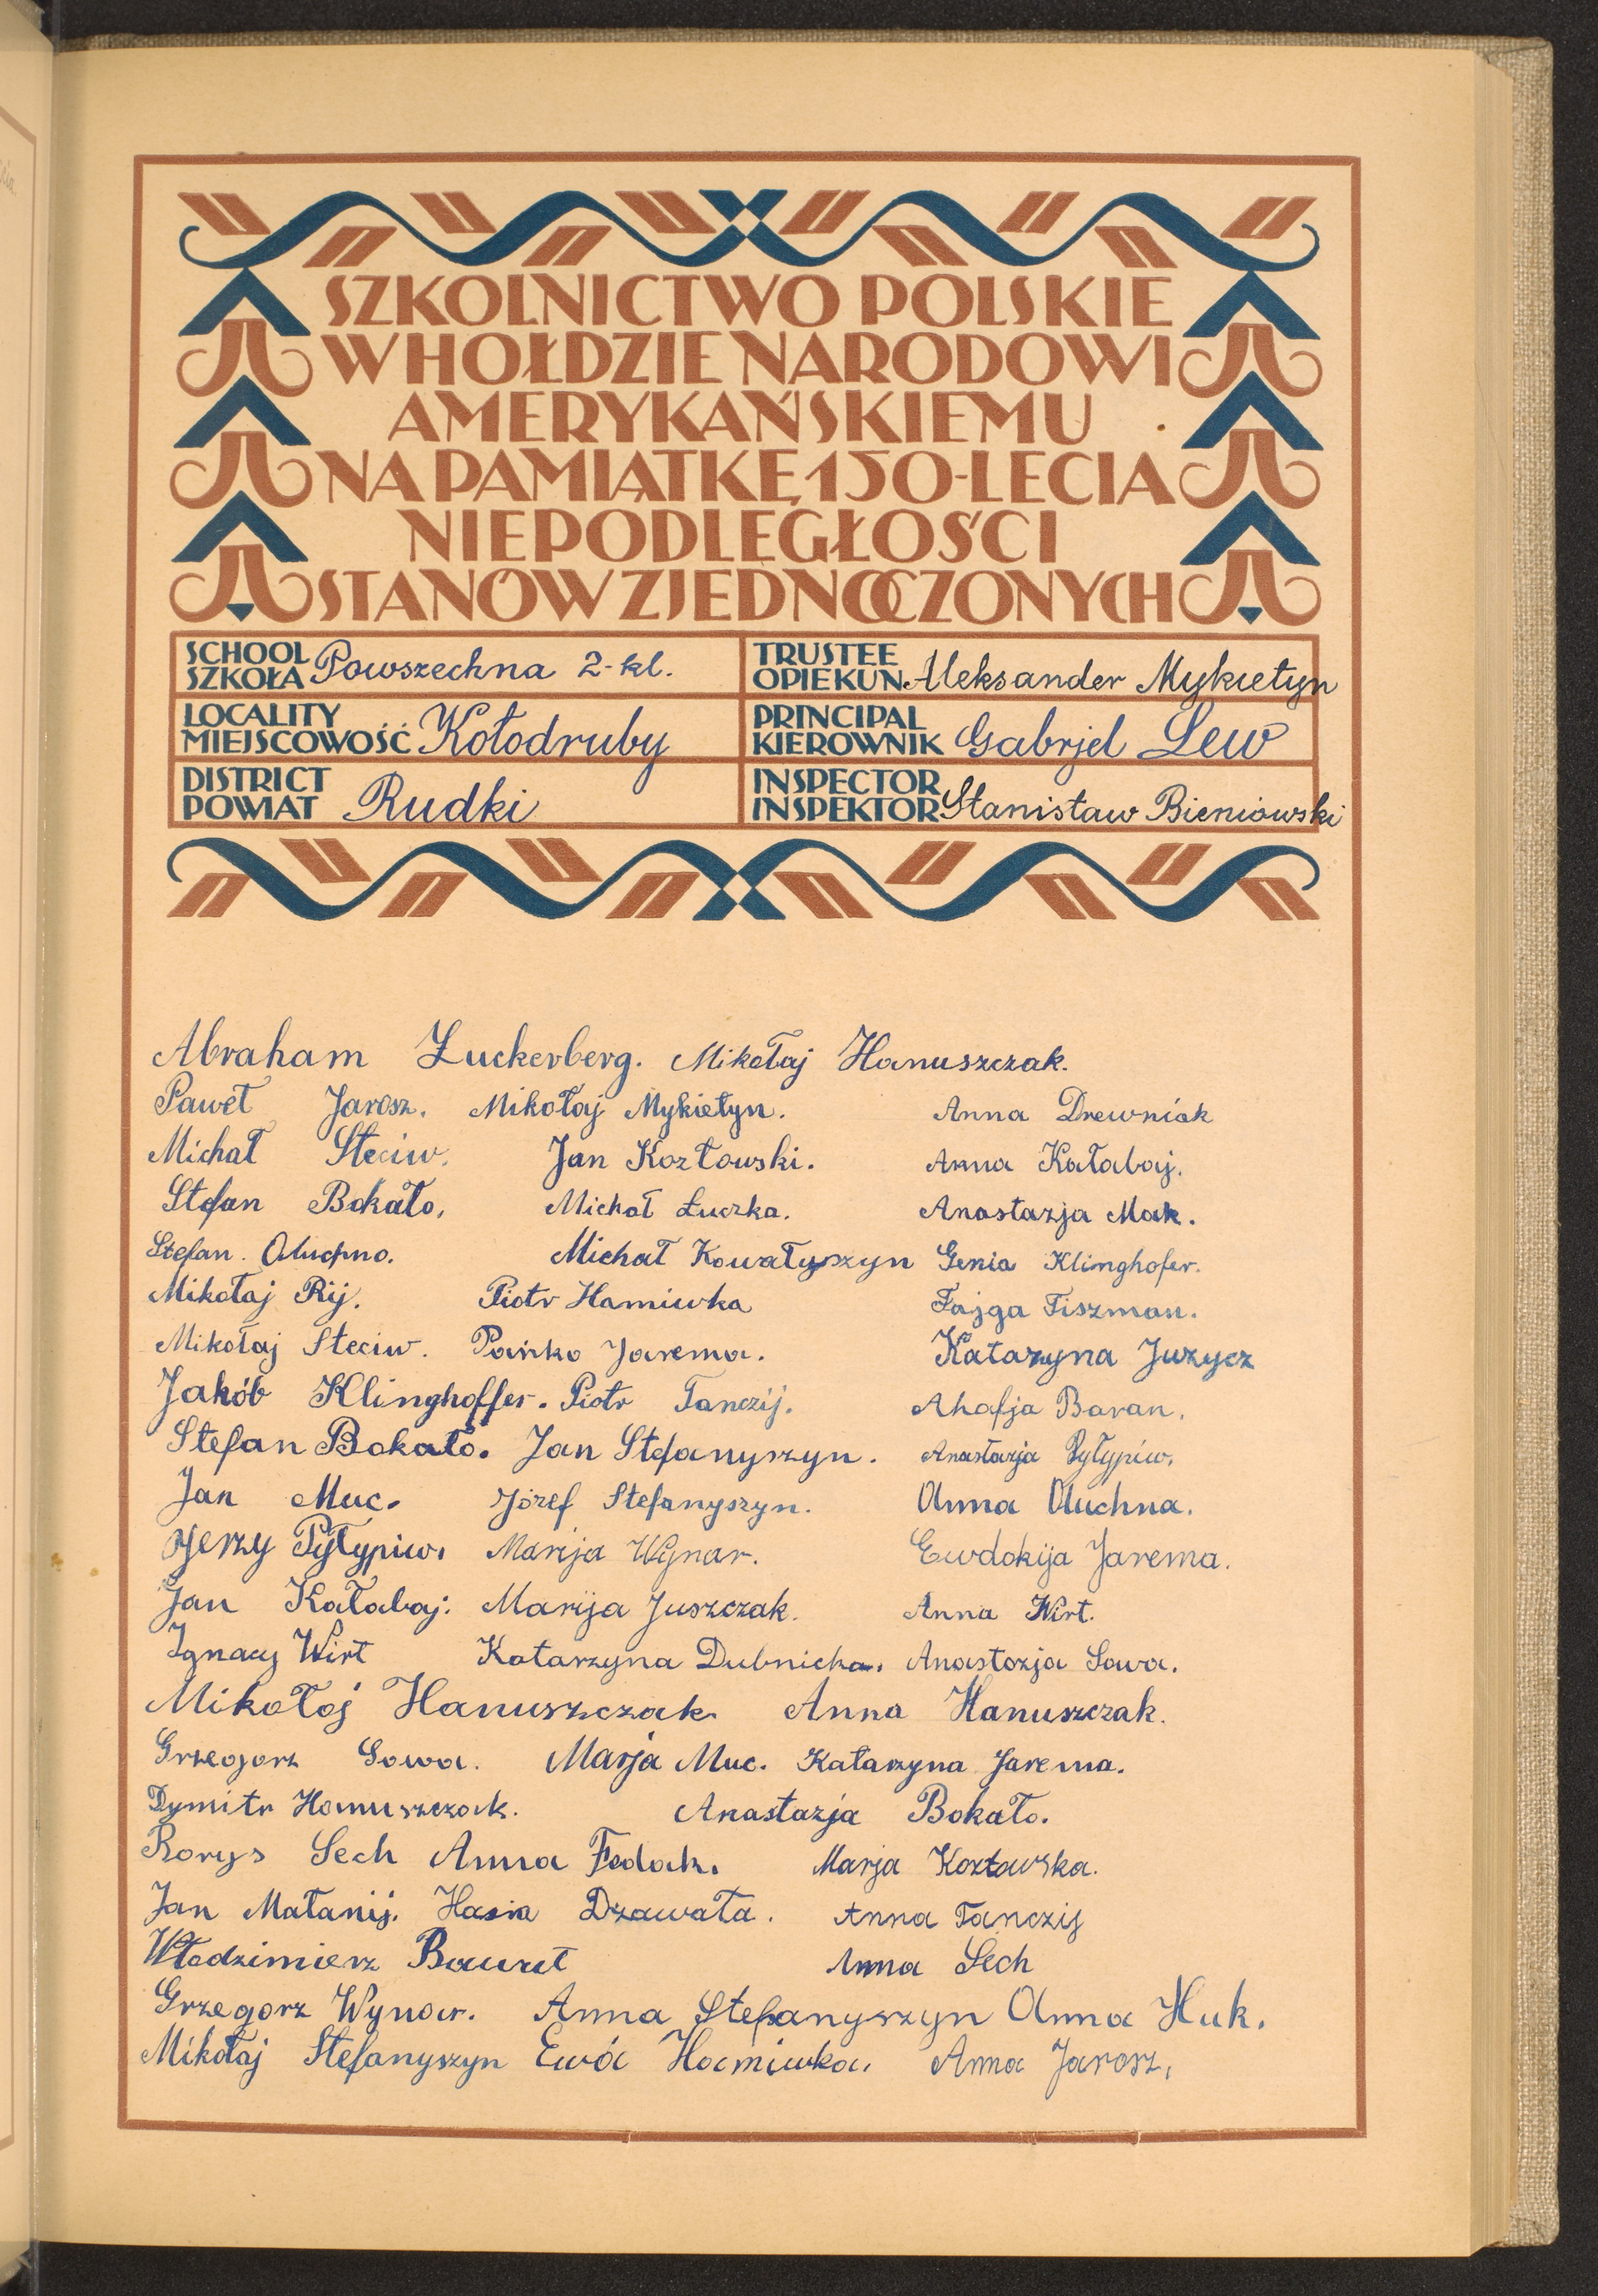 SZKOLNICTWO POLSKIE
W HOŁDZIE NARODOWI
AMERYKAŃSKIEMU
NA PAMIĄTKĘ 150-LECIA
NIEPODLEGŁOŚCI
STANÓW ZJEDNOCZONYCH
SCHOOL
SZKOŁA Powszechna 2-kl.
TRUSTEE
OPIEKUN Aleksander Mykietyn
LOCALITY
MIEJSCOWOŚĆ Kołodruby
PRINCIPAL
KIEROWNIK Gabrjel Lew
DISTRICT
POWIAT Rudki
INSPECTOR
INSPEKTOR Stanisław Bieniowski
Abraham Zuckerberg. Mikołaj Hanuszczak.
Paweł Jarosz. Mikołaj Mykietyn. Anna Drewniak
Michał Steciw. Jan Kozłowski. Anna Kałabaj.
Stefan Bokało. Michał Łuczka. Anastazja Mak.
Stefan Michał Kowałyszyn Genia Klinghofer.
Mikołaj Rij. Piotr Hamiwka Fajga Fiszman.
Mikołaj Steciw. Pańko Jarema. Katarzyna Juzycz
Jakób Klinghoffer. Piotr Tanczij. Ahafja Baran.
Stefan Bokało. Jan Stefanyszyn. Anastazja Pyłypiw.
Jan Muc. Józef Stefanyszyn. Anna Ołuchna.
Jerzy Pyłypiw. Marija Wynar. Ewdokija Jarema.
Jan Kałabaj. Marija Juszczak. Anna Wirt.
Ignacy Wirt Katarzyna Dubnicka. Anastazja Sowa.
Mikołaj Hanuszczak Anna Hanuszczak.
Grzegorz Sowa. Marja Muc. Katarzyna Jarema.
Dymitr Hanuszczak. Anastazja Bokało.
Borys Lech Anna Fedak. Marja Kozławska.
Jan Małanij. Hasia Dzawała. Anna Tanczij
Włodzimierz Anna Lech
Grzegorz Wynar. Anna Stefanyszyn Anna Huk.
Mikołaj Stefanyszyn Ewa Hamiwka. Anna Jarosz.